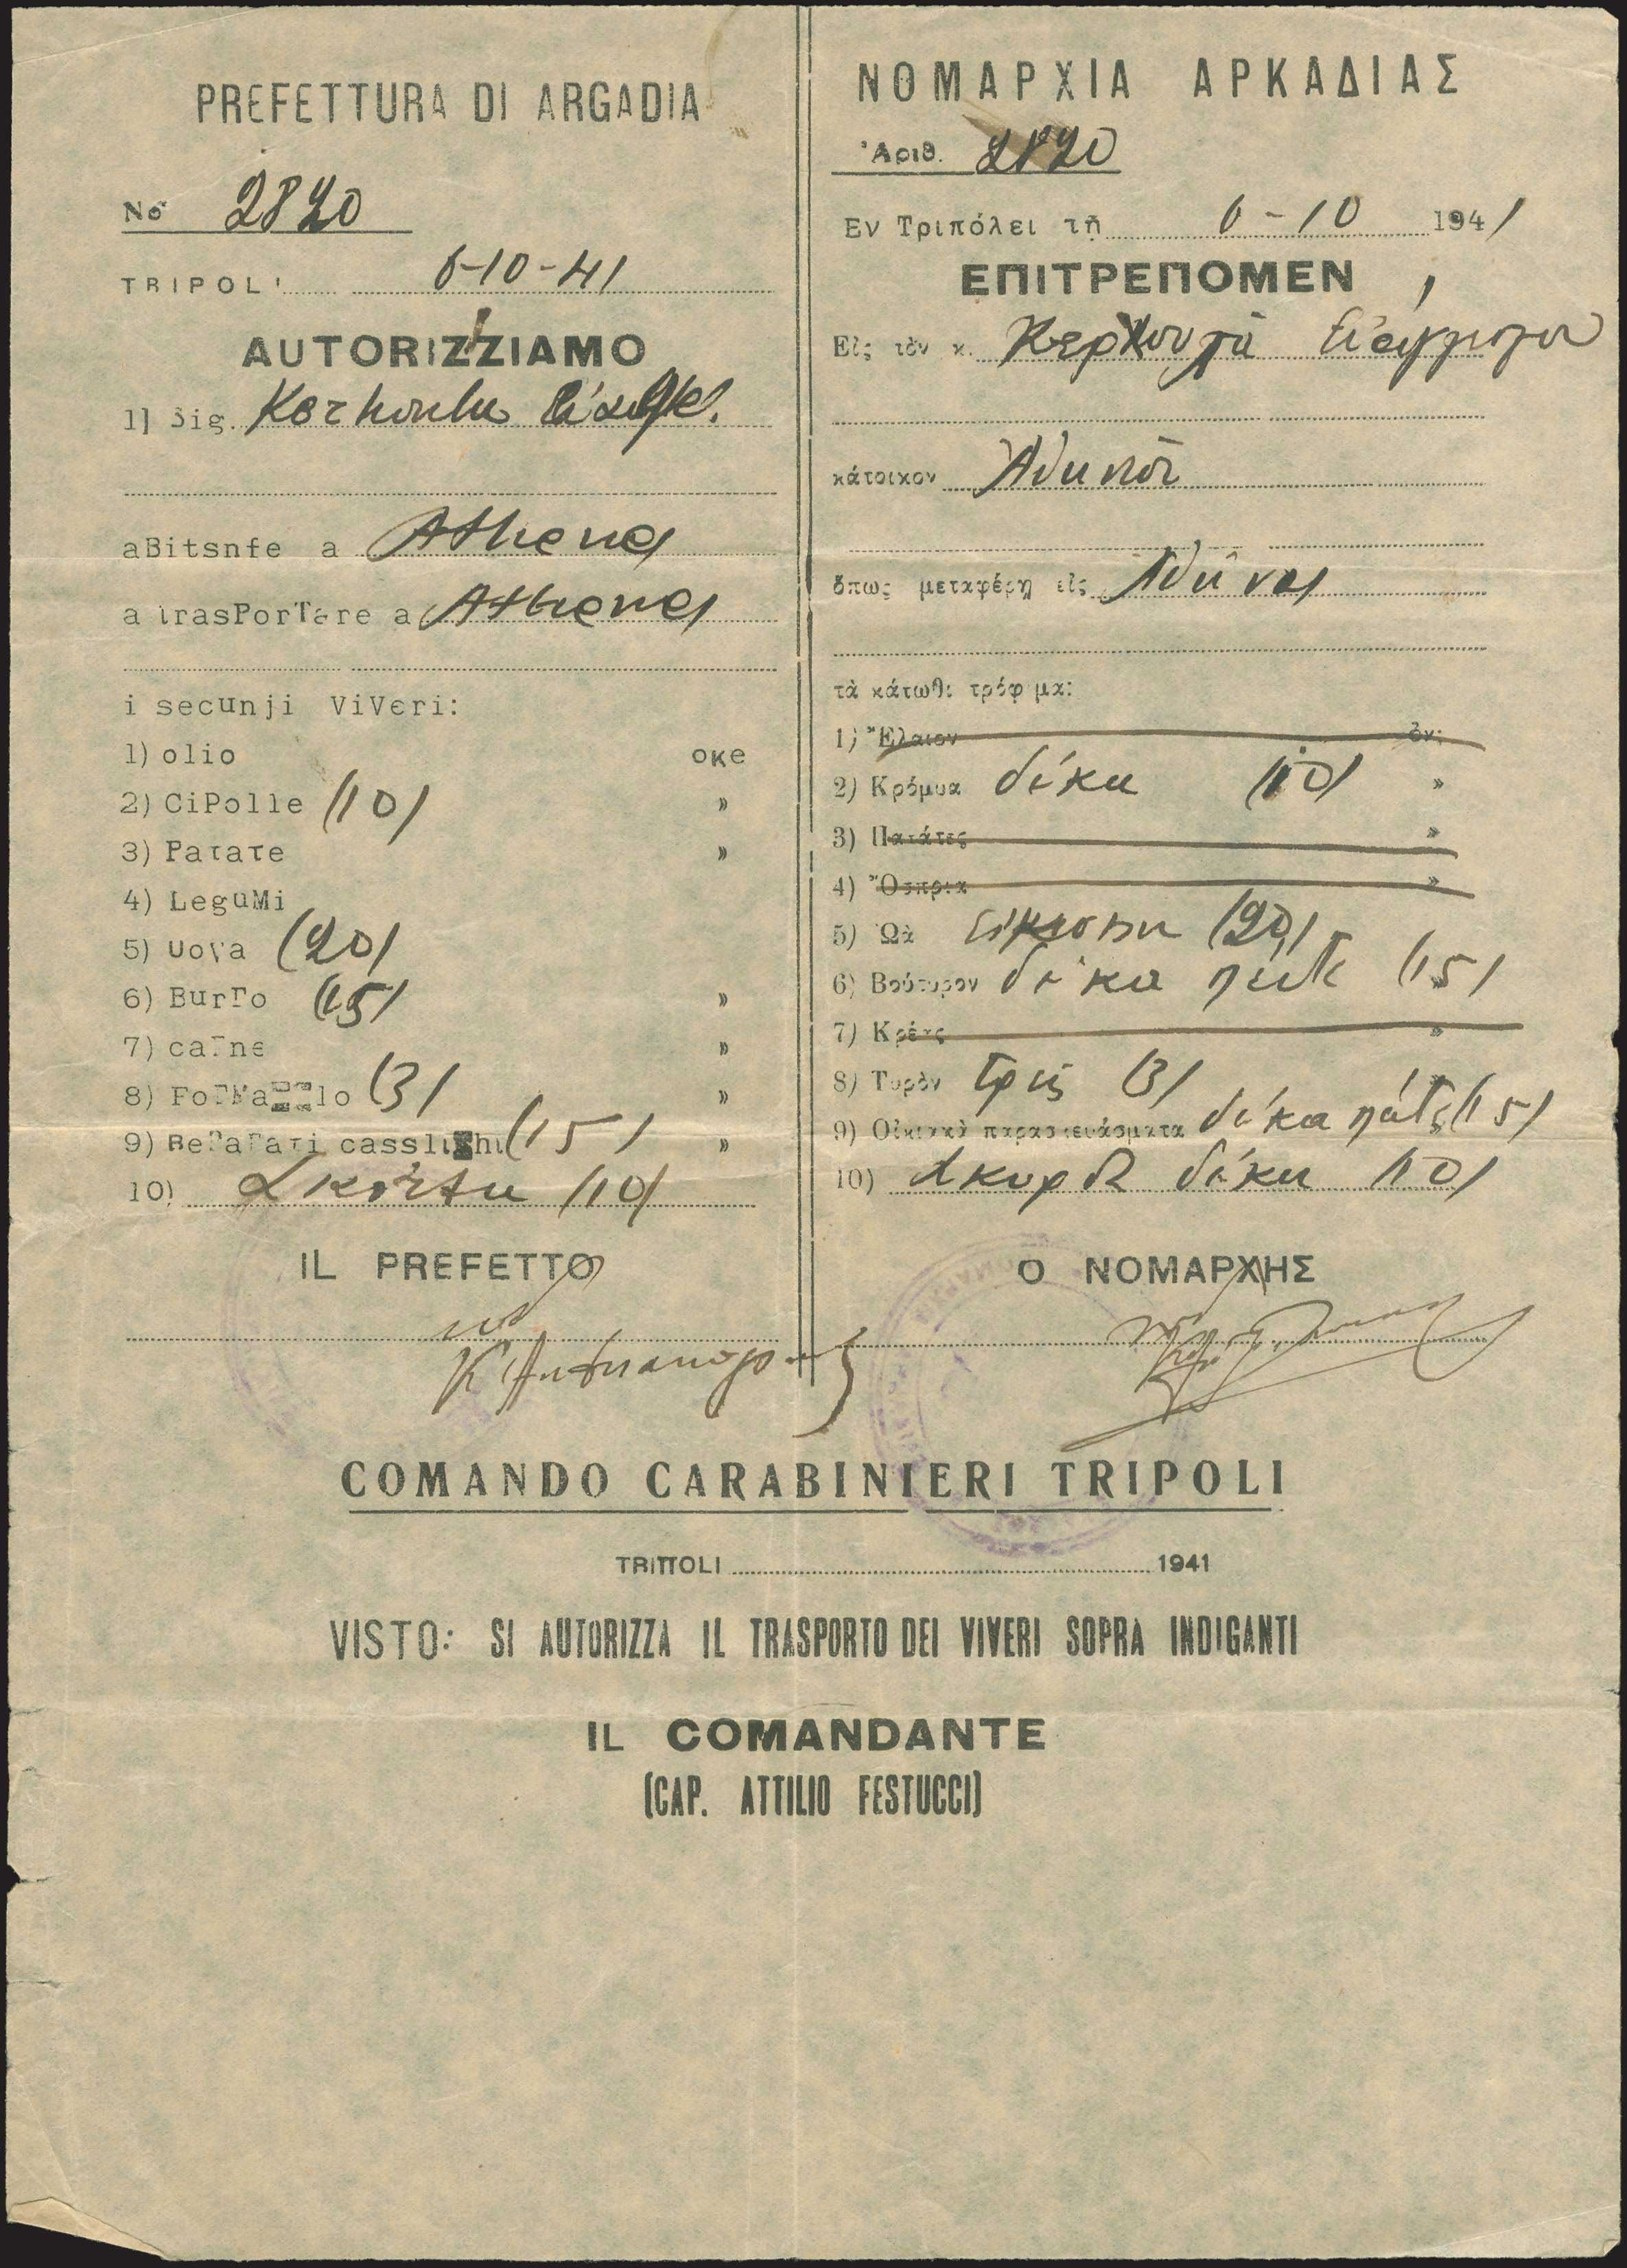 PREFETTURA DI ARGADIA
Nο 2820
TRIPOLI 6-10-41
AUTORIZZIAMO
1] Sig.
aBitsnfe a Athena
a trasPorTare a Athena
i secunji ViVeri:
1) olio oκe
2) CiPolle (10) »
3) Patate »
4) LeguMi
5) uova (20)
6) BurΓo (15) »
7) caΓne »
8) (3) »
9) (15) »
10) (10)
IL PREFETTO
ΝΟΜΑΡΧΙΑ ΑΡΚΑΔΙΑΣ
Ἀριθ. 2820
Εν Τριπόλει τῇ 6-10 1941
ΕΠΙΤΡΕΠΟΜΕΝ
Εἰς τὸν κ.
κάτοικον
ὅπως μεταφέρῃ εἰς Ἀθήνας
τὰ κάτωθι τρόφιμα:
1) Ἔλαιον ὀκ.
2) Κρόμυα δέκα (10) »
3) Πατάτες »
4) Ὄσπρια »
5) Ὠὰ εἴκοσι (20)
6) Βούτυρον δέκα πέντε (15)
7) Κρέας »
8) Τυρὸν τρεῖς (3) »
9) Οἰκιακὰ παρασκευάσματα δέκα πέντε (15)
10) Σκορδα δέκα (10)
Ο ΝΟΜΑΡΧΗΣ
COMANDO CARABINIERI TRIPOLI
TRIΠOLI 1941
VISTO: SI AUTORIZZA IL TRASPORTO DEI VIVERI SOPRA INDIGANTI
IL COMANDANTE
(CAP. ATTILIO FESTUCCI)